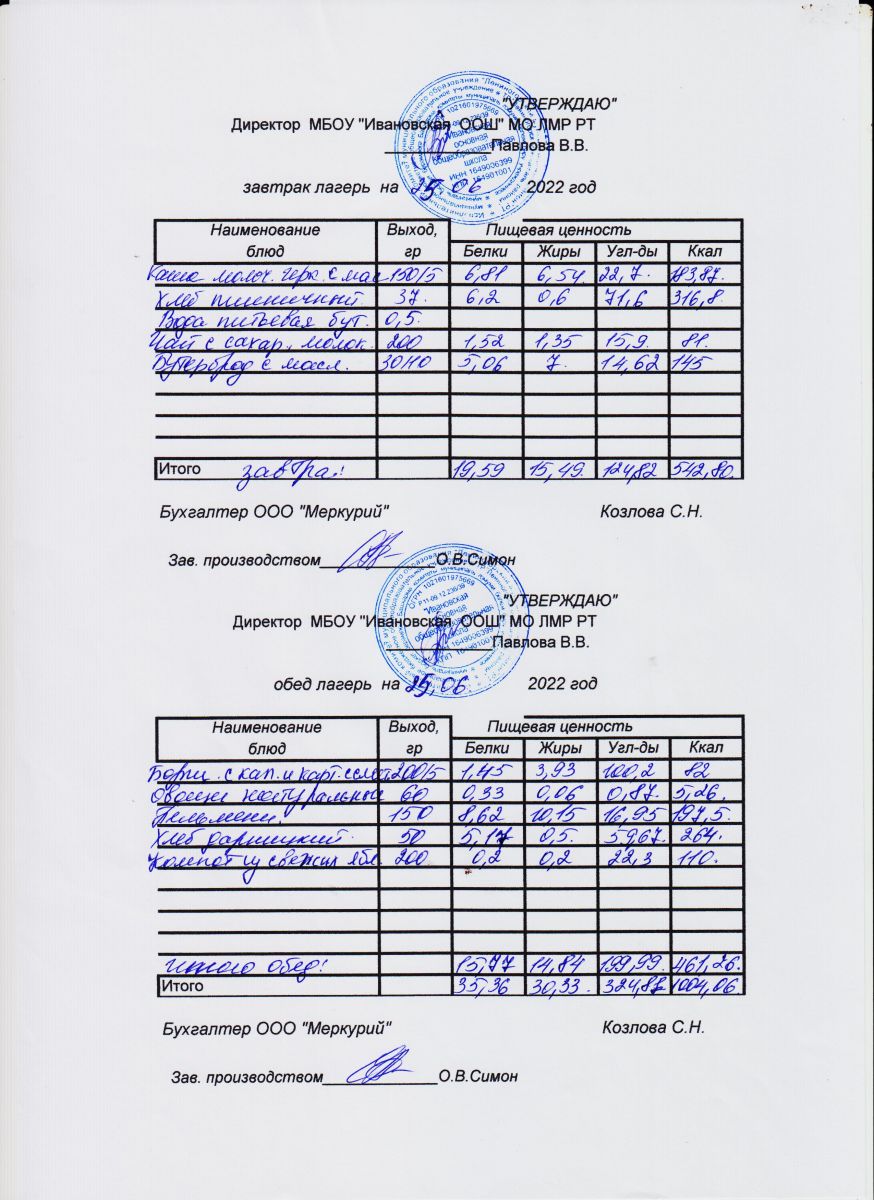 "УТВЕРЖДАЮ"
Директор МБОУ "Ивановская ООШ" МО ЛМР РТ
Павлова В.В.
завтрак лагерь на 25.06 2022 год
Наименование блюд Выход, гр Пищевая ценность
Белки Жиры Угл-ды Ккал
Каша молоч. герк. с мас 150/5 6,81 6,54 22,7. 183,87.
Хлеб пшеничный 37. 6,2 0,6 71,6 316,8.
Вода питьевая бут. 0,5.
Чай с сахар., молок. 200 1,52 1,35 15,9. 81.
Бутерброд с масл. 30/10 5,06 7. 14,62 145
Итого завтрак: 19,59 15,49. 124,82 542,80.
Бухгалтер ООО "Меркурий" Козлова С.Н.
Зав. производством_____________О.В.Симон
"УТВЕРЖДАЮ"
Директор МБОУ "Ивановская ООШ" МО ЛМР РТ
Павлова В.В.
обед лагерь на 25.06. 2022 год
Наименование блюд Выход, гр Пищевая ценность
Белки Жиры Угл-ды Ккал
Борщ с кап. и карт. смет. 200/5 1,45 3,93 100,2 82
Овощи натуральные 60 0,33 0,06 0,87. 5,26.
Пельмени. 150 8,62 10,15 16,95 197,5.
Хлеб дарницкий. 50 5,17 0,5. 59,67. 264.
Компот из свежих ябл. 200 0,2 0,2 22,3 110.
Итого обед: 15,77 14,84 199,99. 461,26.
Итого 35,36 30,33. 324,81 1004,06.
Бухгалтер ООО "Меркурий" Козлова С.Н.
Зав. производством_____________О.В.Симон